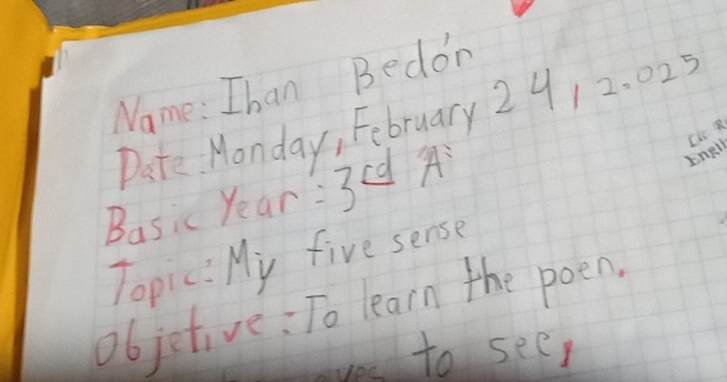 Name: Ihan Bedón
Date: Monday, February 24, 2.025
Basic Year: 3rd "A"
Topic: My five sense
Objetive: To learn the poen.
to see,